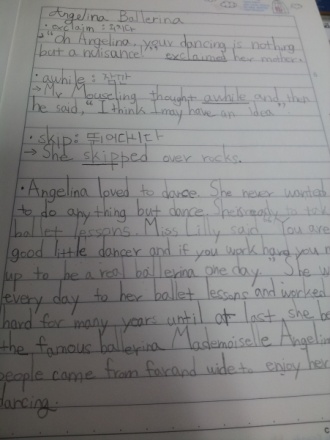 Angelina Ballerina
· exclaim : 외치다
→ "Oh Angelina, your dancing is nothing
but a nuisance" exclaimed her mother.
· awhile : 잠깐
→ Mr Mouseling thought awhile and then
he said, "I think I may have an idea"
· skip : 뛰어다니다
→ She skipped over rocks.
· Angelina loved to dance. She never wanted
to do anything but dance. She
ballet lessons. Miss Lilly said "You are
good little dancer and if you work hard you
up to be a real ballerina one day." She
every day to her ballet lessons and worked
hard for many years until at last she
the famous ballerina Mademoiselle
people came from far and wide to enjoy her
dancing.